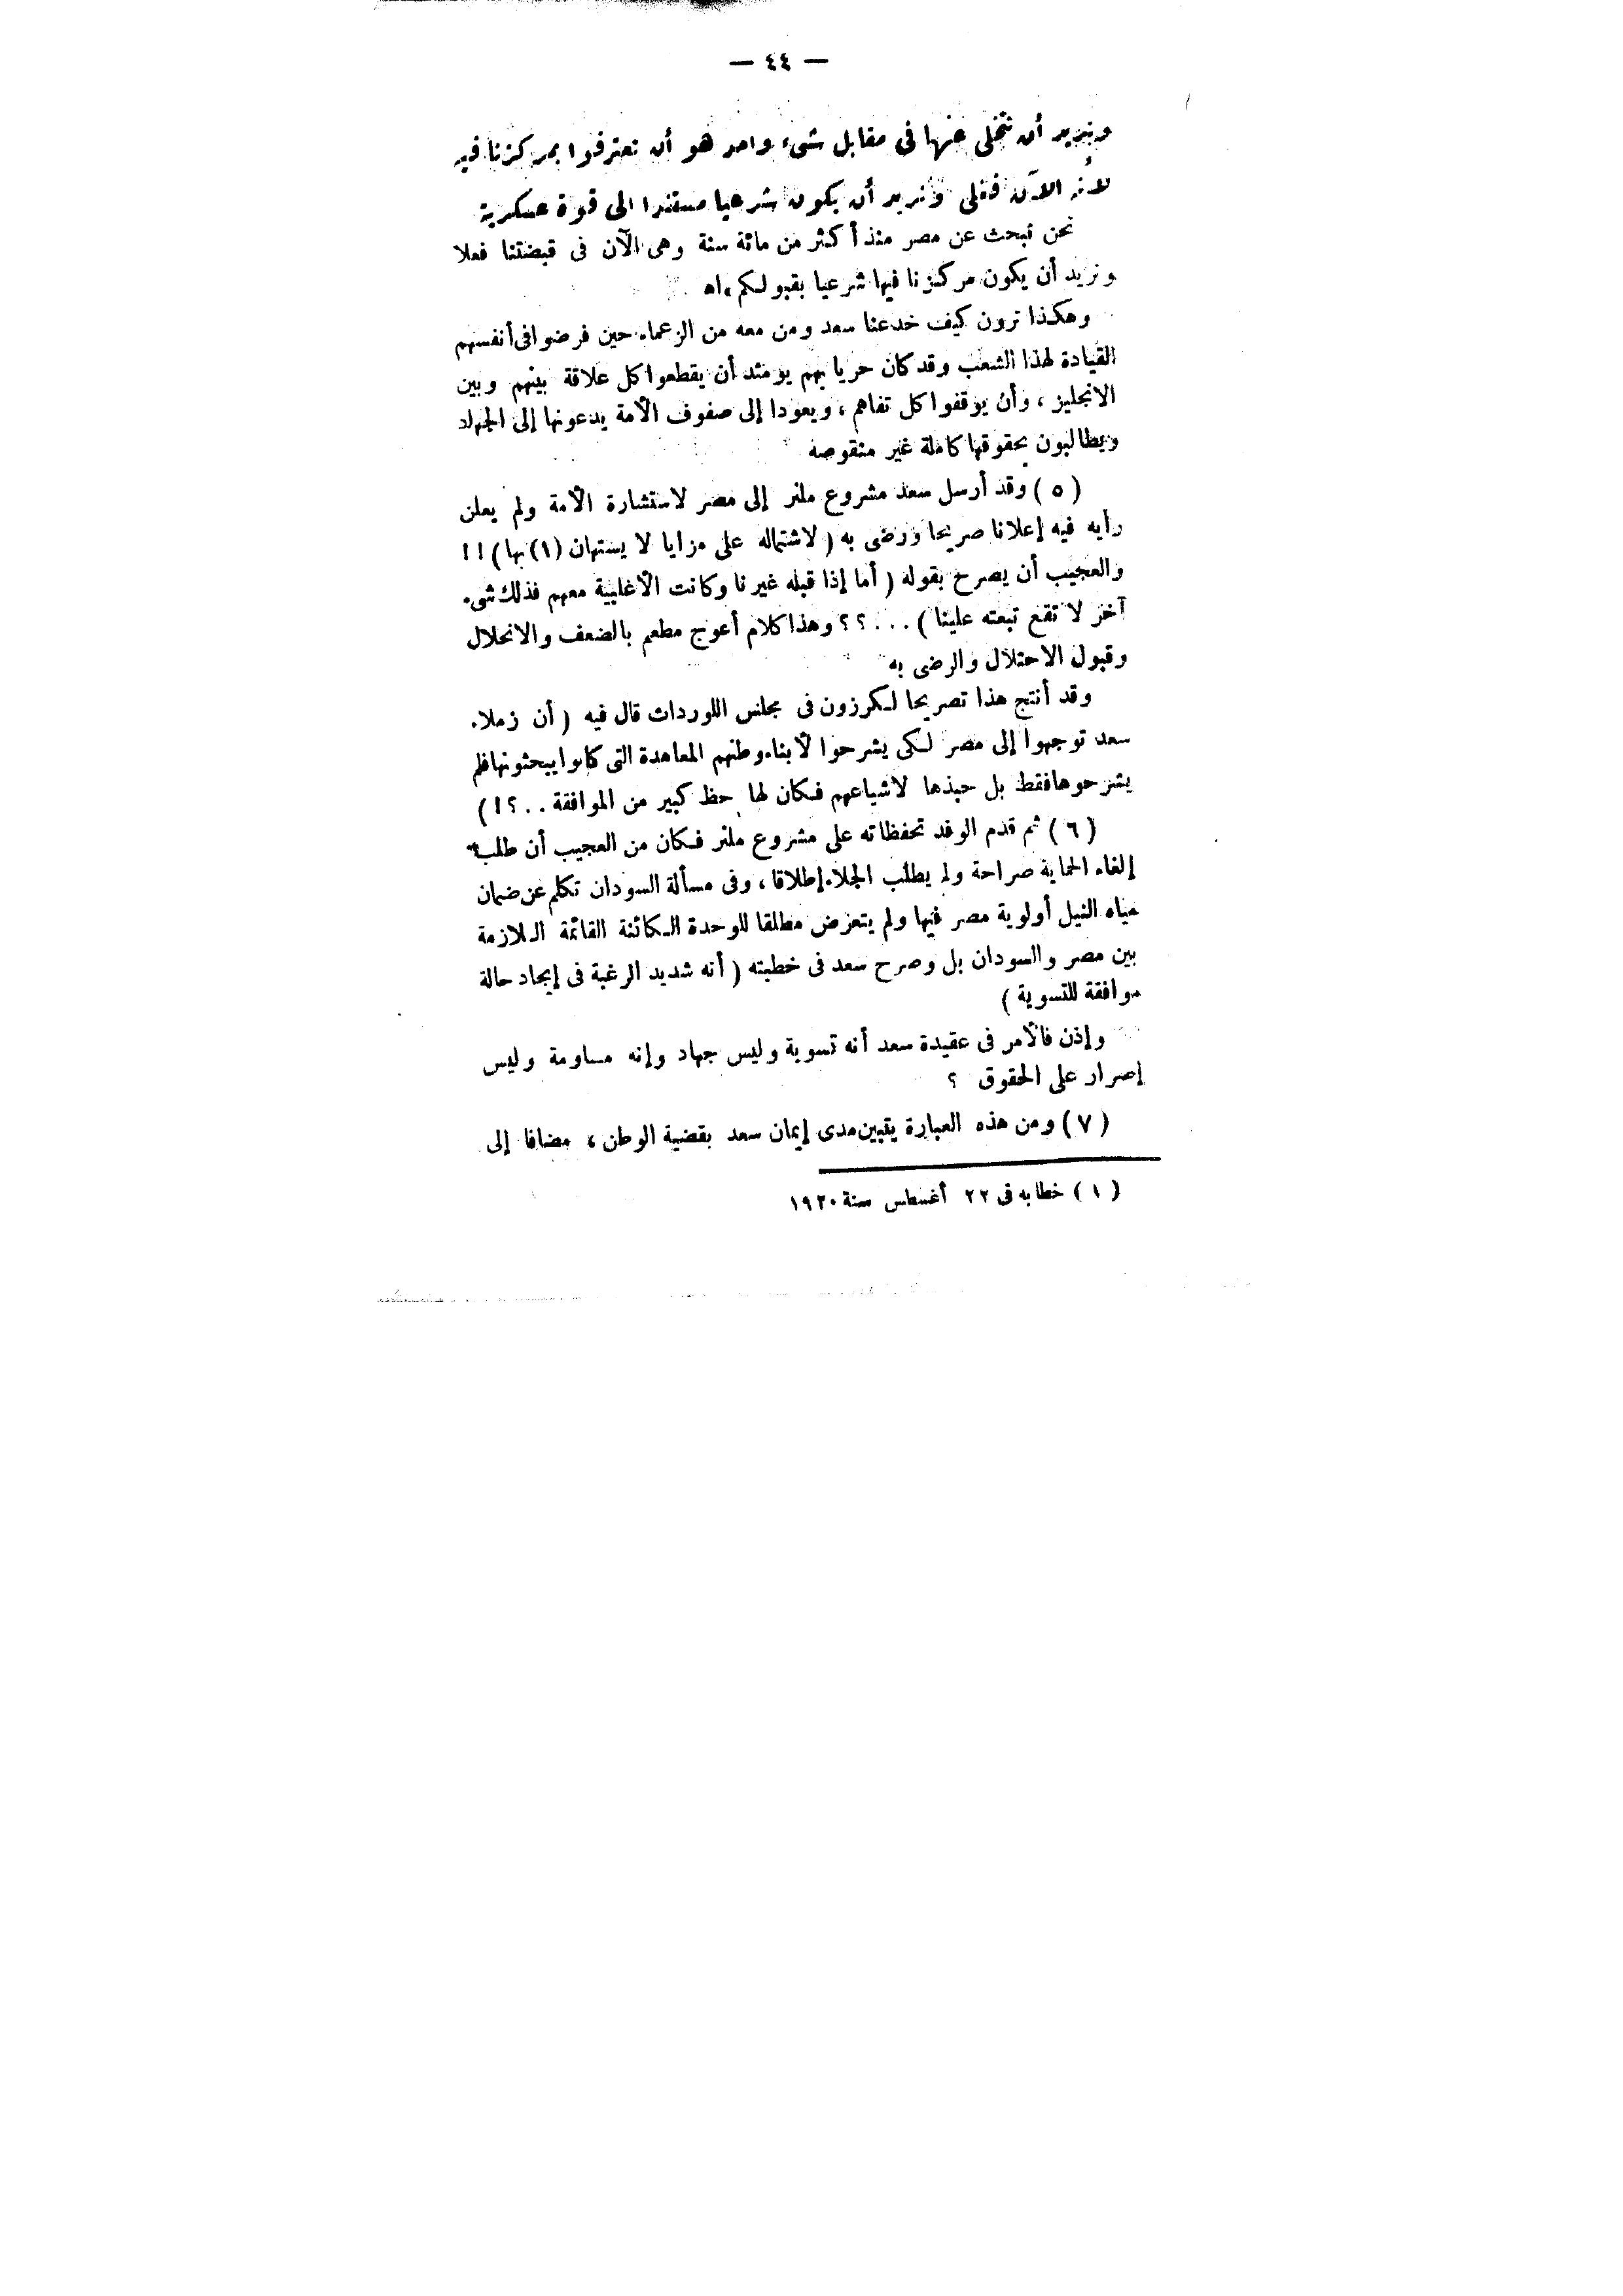 — ٤٤ —
ونريد أن نتخلى عنها فى مقابل شىء واحد هو أن تعترفوا بمركزنا فيه
لأنه الآن فعلى ونريد أن يكون شرعيا مستندا الى قوة عسكرية
نحن نبحث عن مصر منذ أكثر من مائة سنة وهى الآن فى قبضتنا فعلا
ونريد أن يكون مركزنا فيها شرعيا بقبولكم، اه
وهكذا ترون كيف خدعنا سعد ومن معه من الزعماء حين فرضوا فى أنفسهم
القيادة لهذا الشعب وقد كان حريا بهم يومئذ أن يقطعوا كل علاقة بينهم وبين
الانجليز ، وأن يوقفوا كل تفاهم ، ويعودا إلى صفوف الأمة يدعونها إلى الجهاد
ويطالبون بحقوقها كاملة غير منقوصه
( ٥ ) وقد أرسل سعد مشروع ملنر إلى مصر لاستشارة الأمة ولم يعلن
رأيه فيه إعلانا صريحا ورضى به ( لاشتماله على مزايا لا يستهان (١) بها ) ! !
والعجيب أن يصرح بقوله ( أما إذا قبله غيرنا وكانت الأغلبية معهم فذلك شىء
آخر لا تقع تبعته علينا ) . . . ؟ ؟ وهذا كلام أعوج مطعم بالضعف والانحلال
وقبول الاحتلال والرضى به
وقد أنتج هذا تصريحا لكرزون فى مجلس اللوردات قال فيه ( أن زملاء
سعد توجهوا إلى مصر لكى يشرحوا لأبناء وطنهم المعاهدة التى كانوا يبحثونها فلم
يشرحوها فقط بل حبذها لأشياعهم فكان لها حظ كبير من الموافقة . . ؟ ! )
( ٦ ) ثم قدم الوفد تحفظاته على مشروع ملنر فكان من العجيب أن طلب
إلغاء الحماية صراحة ولم يطلب الجلاء إطلاقا ، وفى مسألة السودان تكلم عن ضمان
مياه النيل أولوية مصر فيها ولم يتعرض مطلقا للوحدة الكائنة القائمة اللازمة
بين مصر والسودان بل وصرح سعد فى خطبته ( أنه شديد الرغبة فى إيجاد حالة
موافقة للتسوية )
وإذن فالأمر فى عقيدة سعد أنه تسوية وليس جهاد وإنه مساومة وليس
إصرار على الحقوق ؟
( ٧ ) ومن هذه العبارة يتبين مدى إيمان سعد بقضية الوطن ، مضافا إلى
( ١ ) خطابه فى ٢٢ أغسطس سنة ١٩٢٠